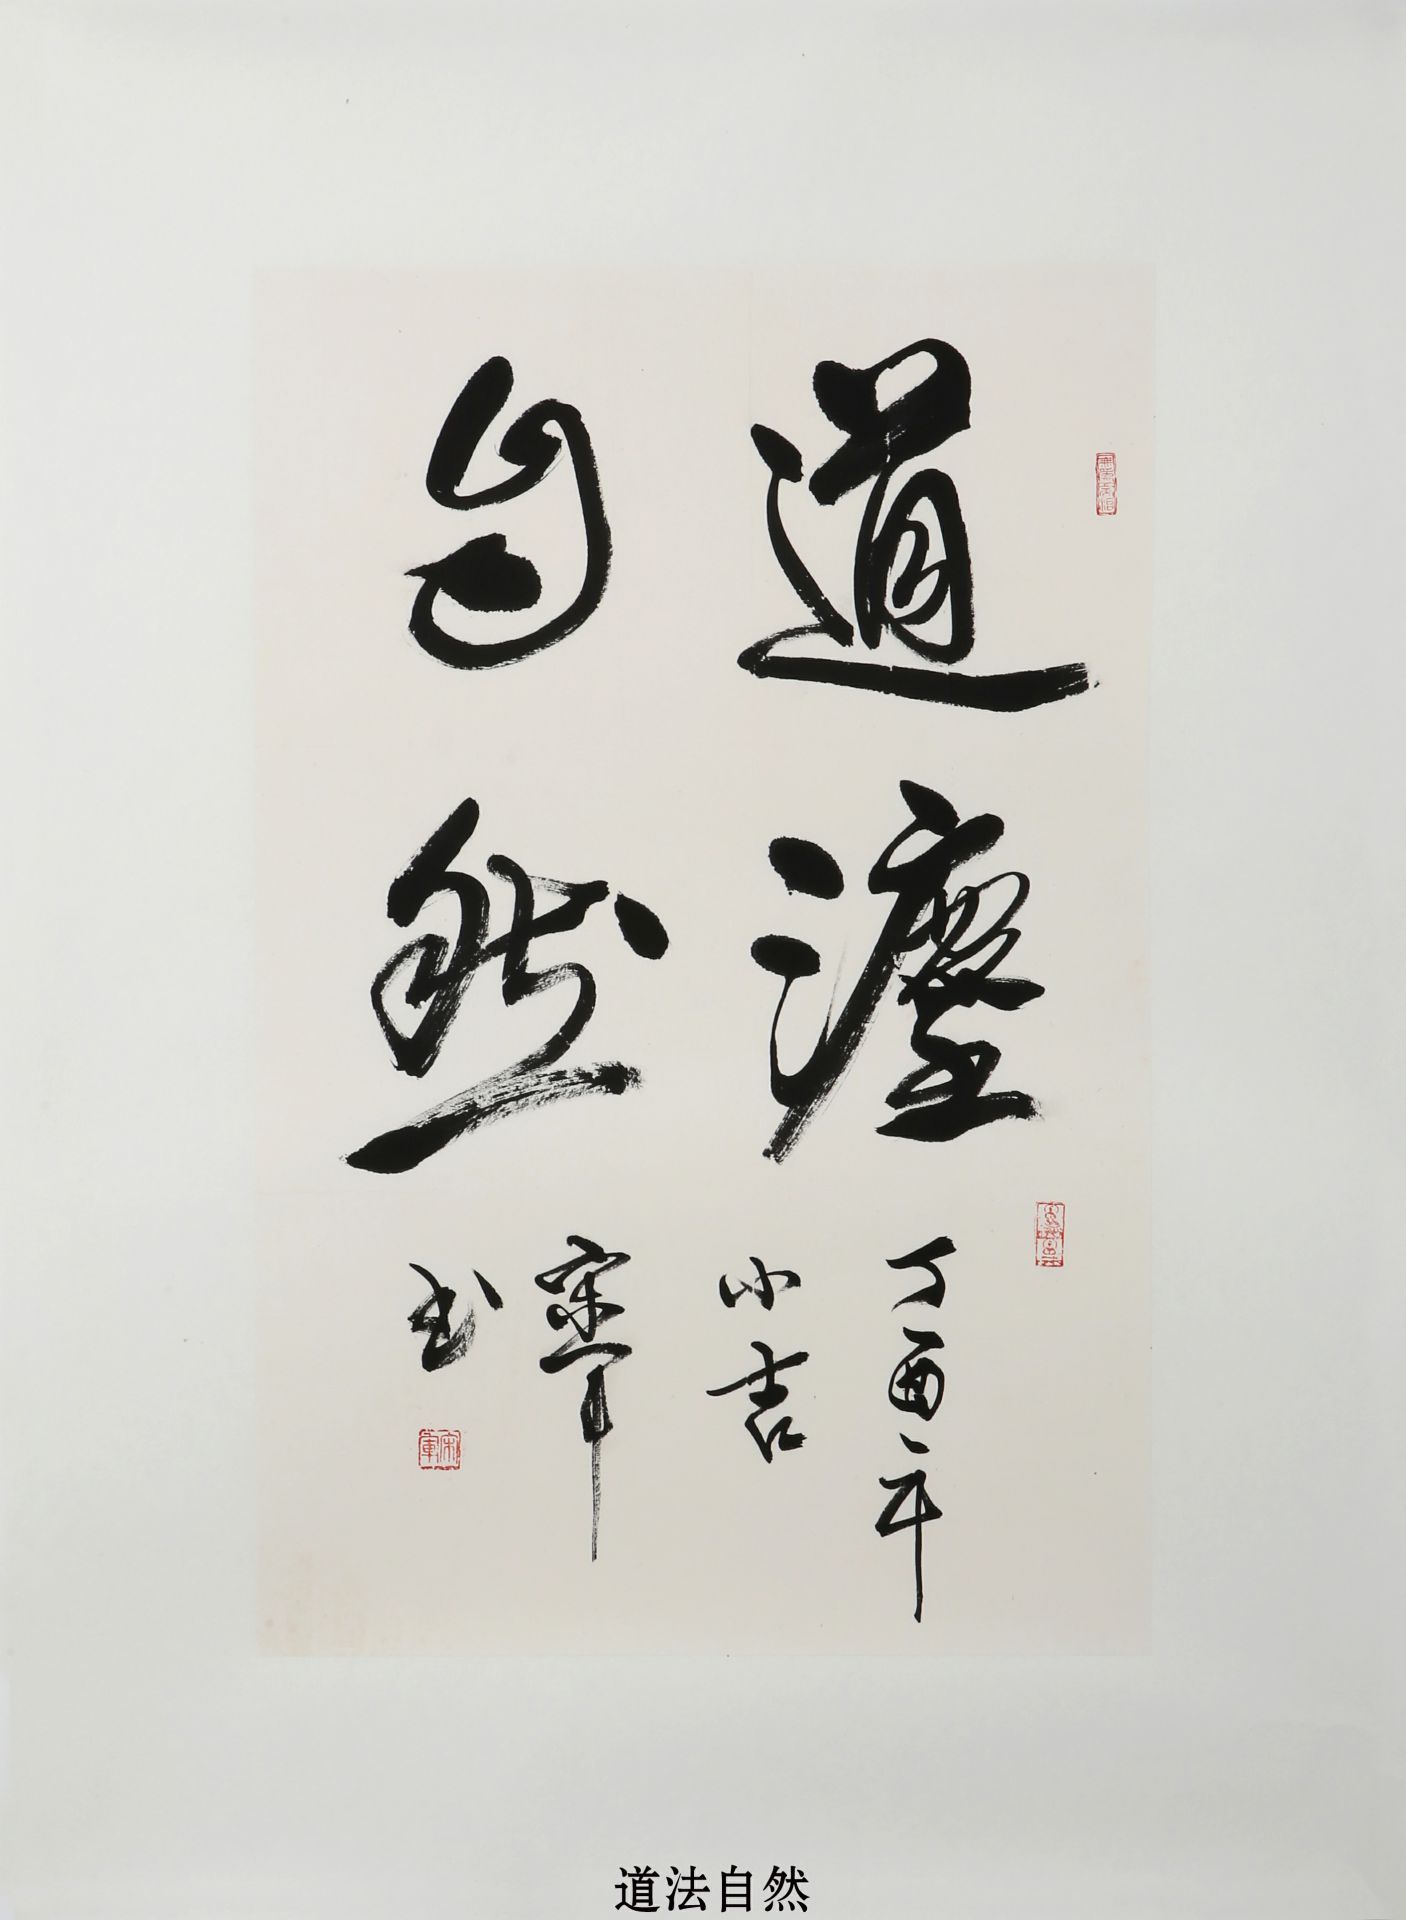 道灋
自然
丁酉年
小吉
宋軍
书
宋軍
道法自然